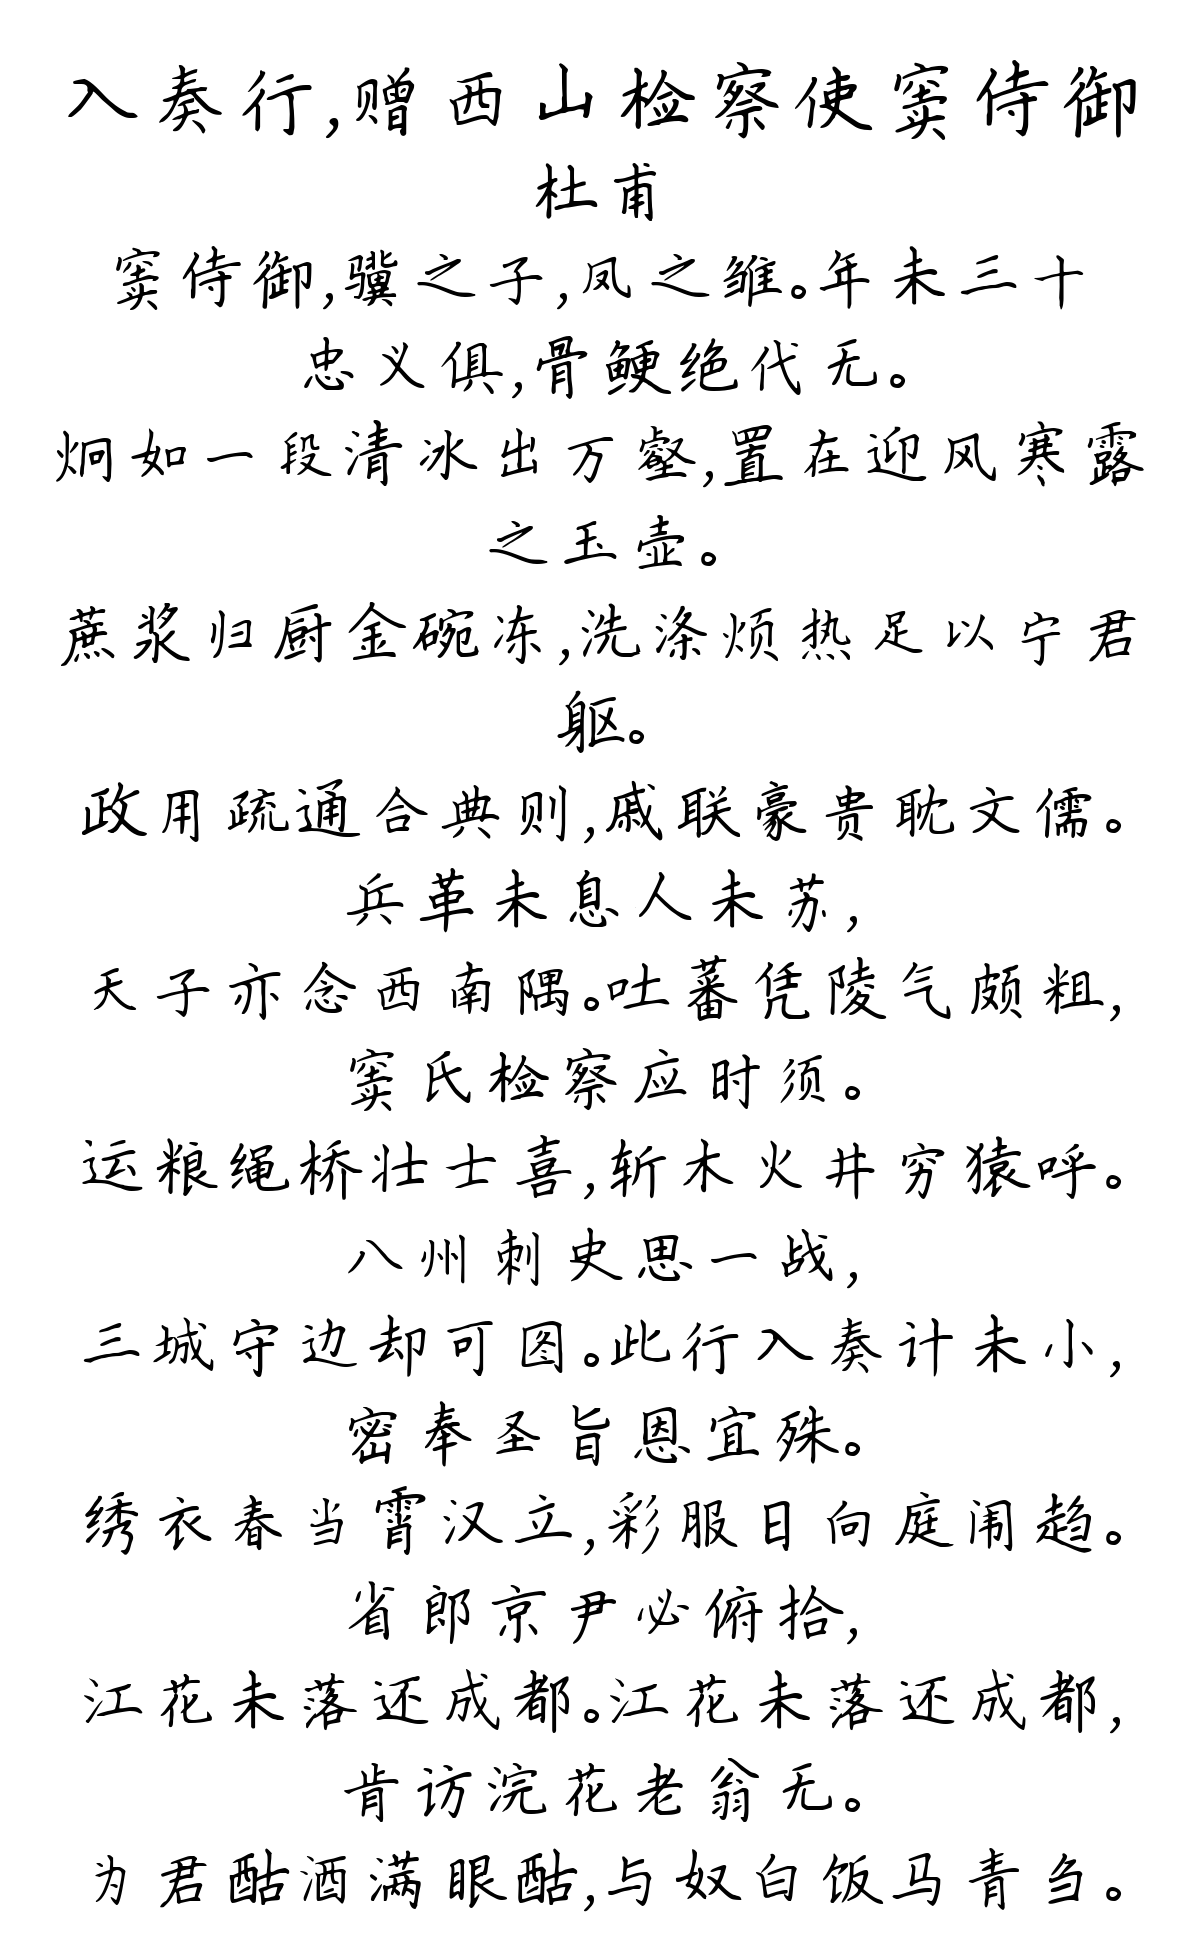 入奏行,赠西山检察使窦侍御
杜甫
窦侍御,骥之子,凤之雏。年未三十
忠义俱,骨鲠绝代无。
炯如一段清冰出万壑,置在迎风寒露
之玉壶。
蔗浆归厨金碗冻,洗涤烦热足以宁君
躯。
政用疏通合典则,戚联豪贵耽文儒。
兵革未息人未苏,
天子亦念西南隅。吐蕃凭陵气颇粗,
窦氏检察应时须。
运粮绳桥壮士喜,斩木火井穷猿呼。
八州刺史思一战,
三城守边却可图。此行入奏计未小,
密奉圣旨恩宜殊。
绣衣春当霄汉立,彩服日向庭闱趋。
省郎京尹必俯拾,
江花未落还成都。江花未落还成都,
肯访浣花老翁无。
为君酤酒满眼酤,与奴白饭马青刍。